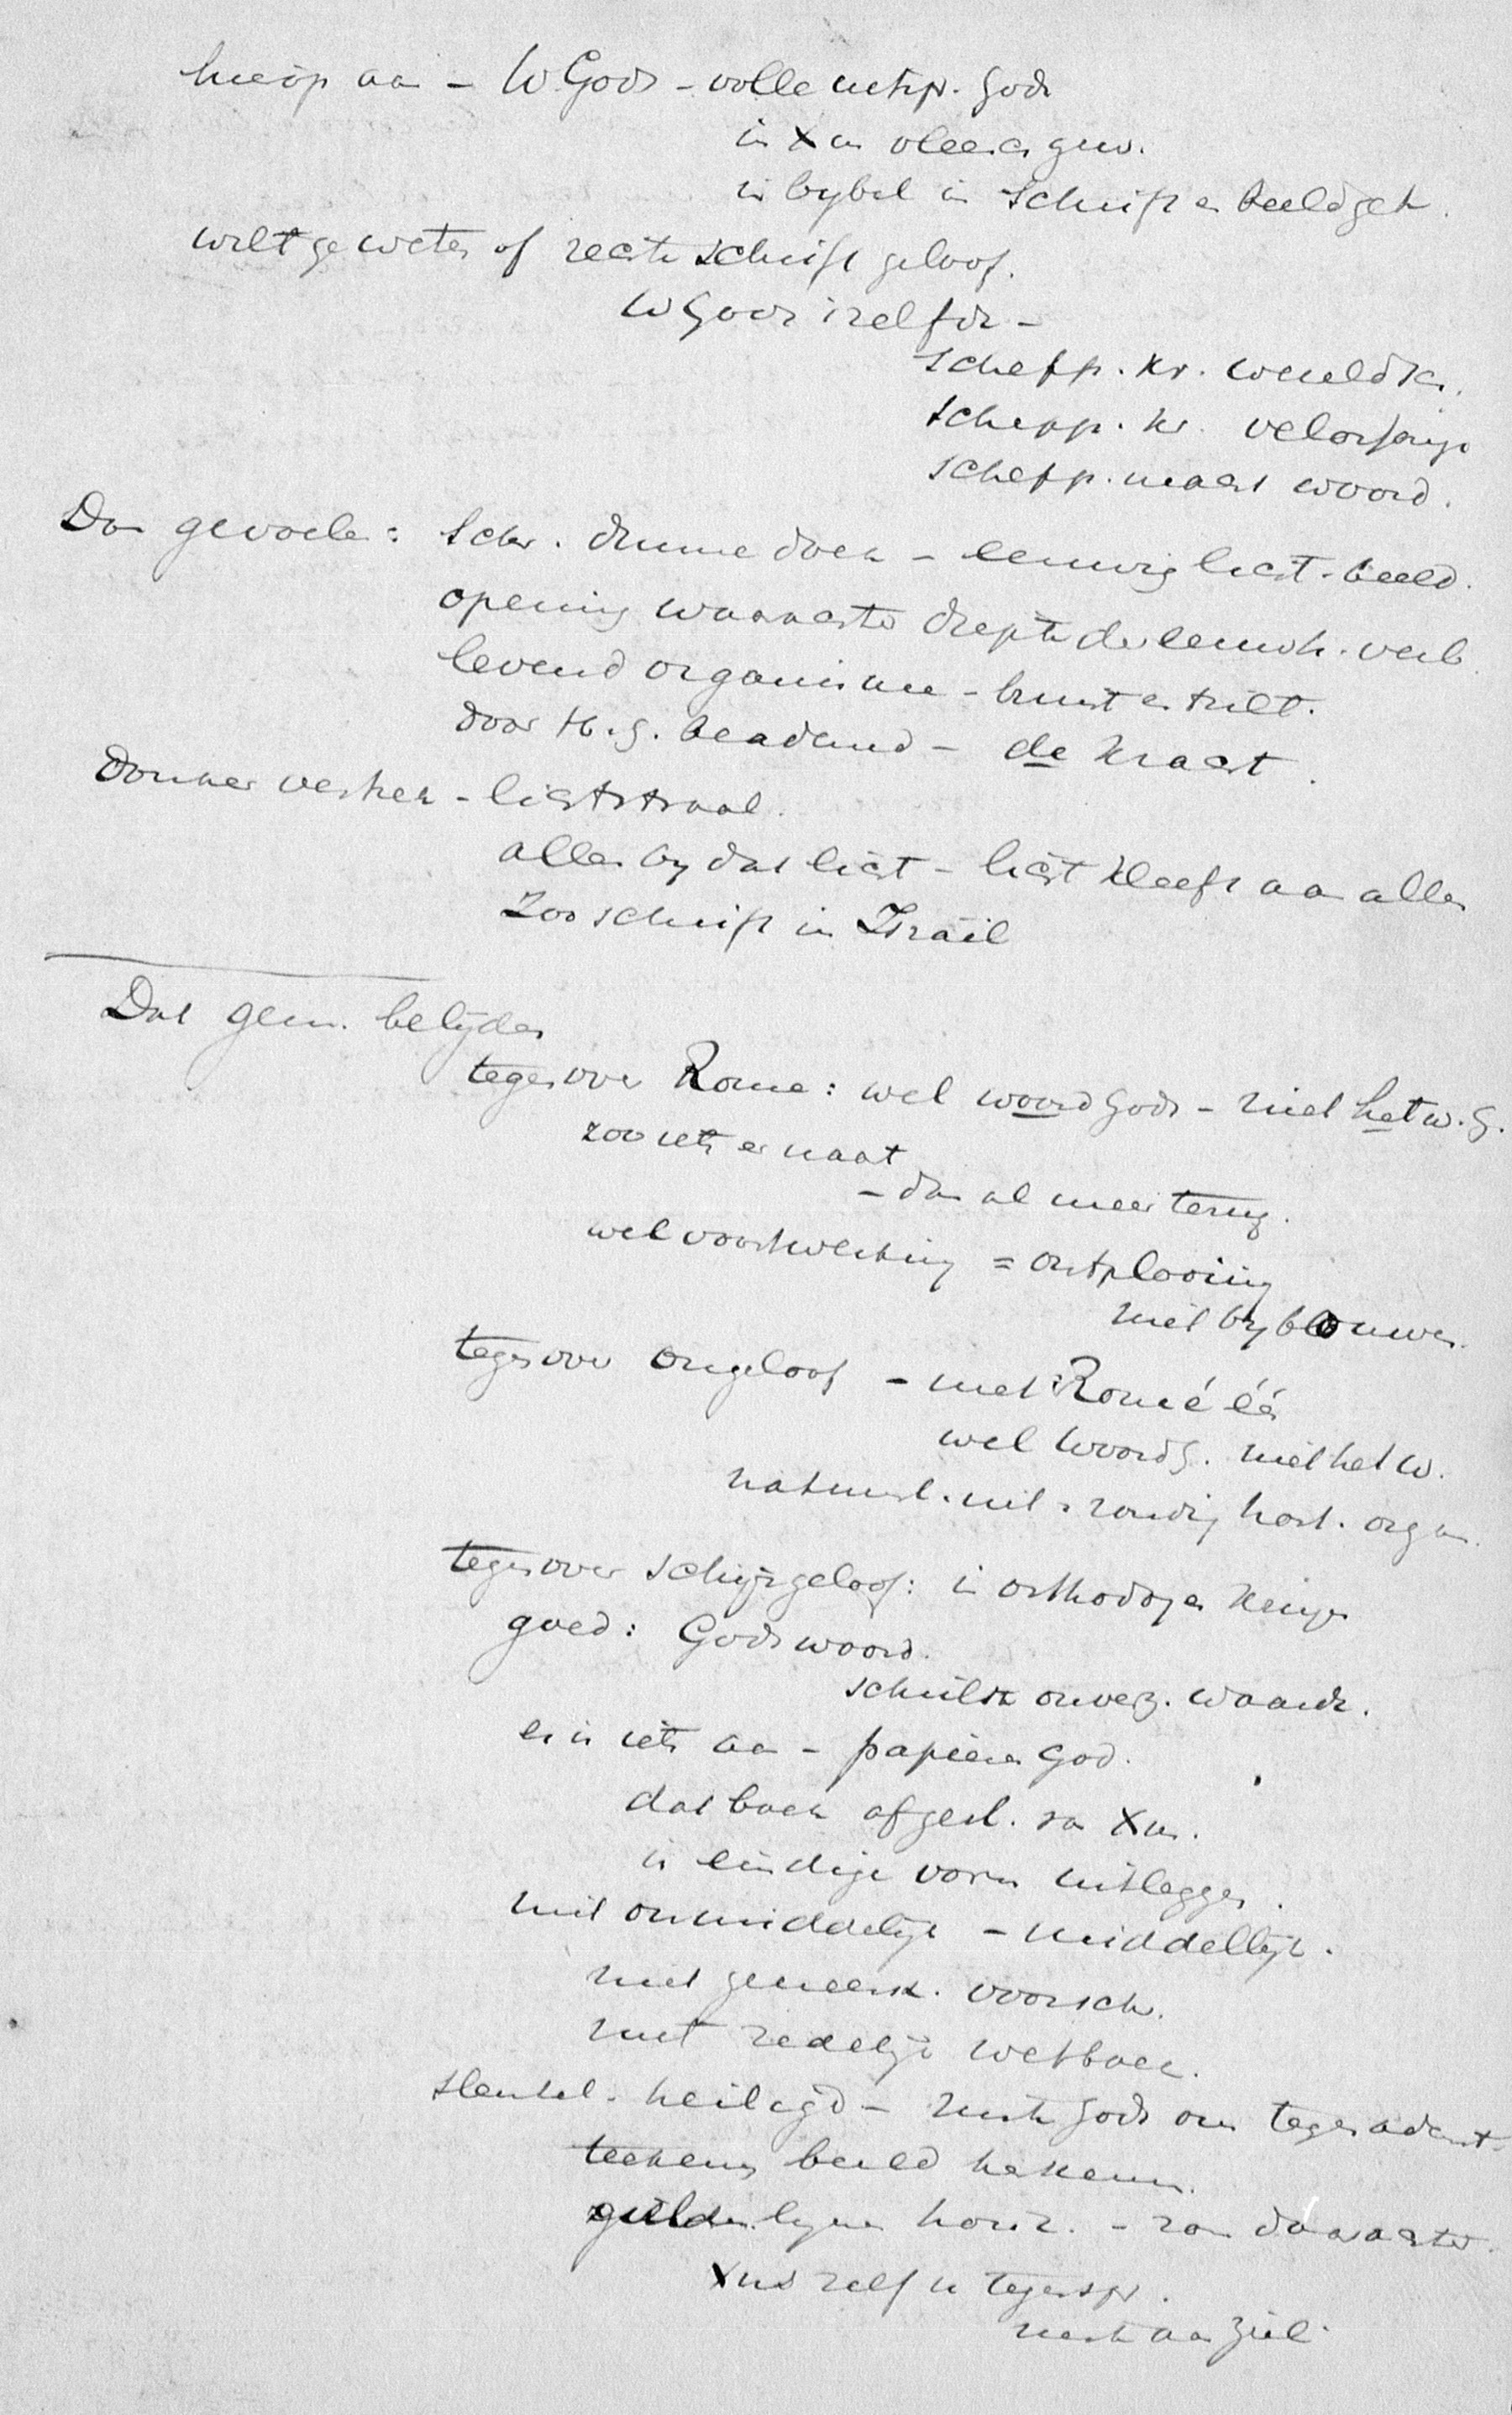 hierop aan - W Gods - volle uitspr. Gods
in Xus vleesch gew.
in bybel in schrift en beeld geh.
wilt ge weten of rechte schrift geloof.
W Gods zelf is -
schepp. kr. wereldsch.
schepp. kr. verlossing
schepp. macht woord.
Dan gevoelen: Schr. dunne doek - eeuwig licht-beeld.
opening waarachter diepte der eeuwh. verb.
levend organisme - bruist en trilt.
door H. G. beademd - de kracht.
donker vertrek - lichtstraal.
alles by dat licht - licht kleeft aan alles
zoo schrift in Israël
Dat gem. belijden
tegenover Rome: wel woord Gods - niet het w. G.
zoo iets er naast
- dan al meer terug.
wel voortwerking = ontplooiing
niet bybouwen.
tegenover ongeloof - met Rome één
wel woord G. niet het w.
natuurl. uit zondig hart. organ.
tegenover schijngeloof: in orthodoxe kringen
goed: Gods woord.
schuilt onverg. waarde.
er is iets aan - papieren God.
dat boek afgesl. van Xus.
in eindige vorm uitleggen.
niet onmiddelijk - middellijk.
niet gemeensch. voorsch.
niet redelijk wetboek.
sleutel. heiligd - rust Gods ons tegenademt
teekening beeld
gulden lynen horiz. - zon daarachter.
Xus zelf u tegenspr.
rust aan ziel.